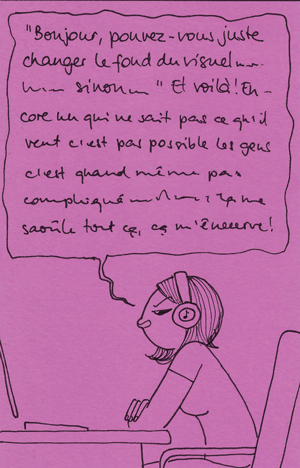 "Bonjour, pouvez-vous juste
changer le fond du visuel
sinon " Et voilà! En-
core un qui ne sait pas ce qu'il
veut c'est pas possible les gens
c'est quand même pas
compliqué ça me
saoûle tout ça, ça m'éneeerve!